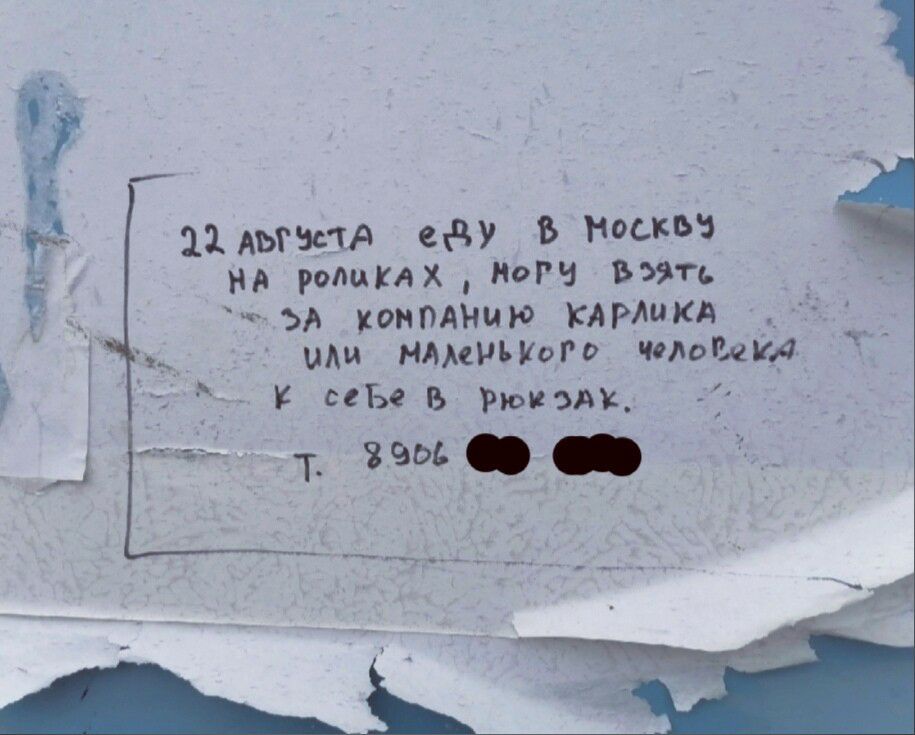 22 АВГУСТА еДУ В МОСКВУ
НА РОЛИКАХ, МОГУ ВЗЯТЬ
ЗА КОМПАНИЮ КАРЛИКА
ИЛИ МАЛеНЬКОГО ЧеЛОВеКА
К СеБе В РЮКЗАК.
Т. 8906